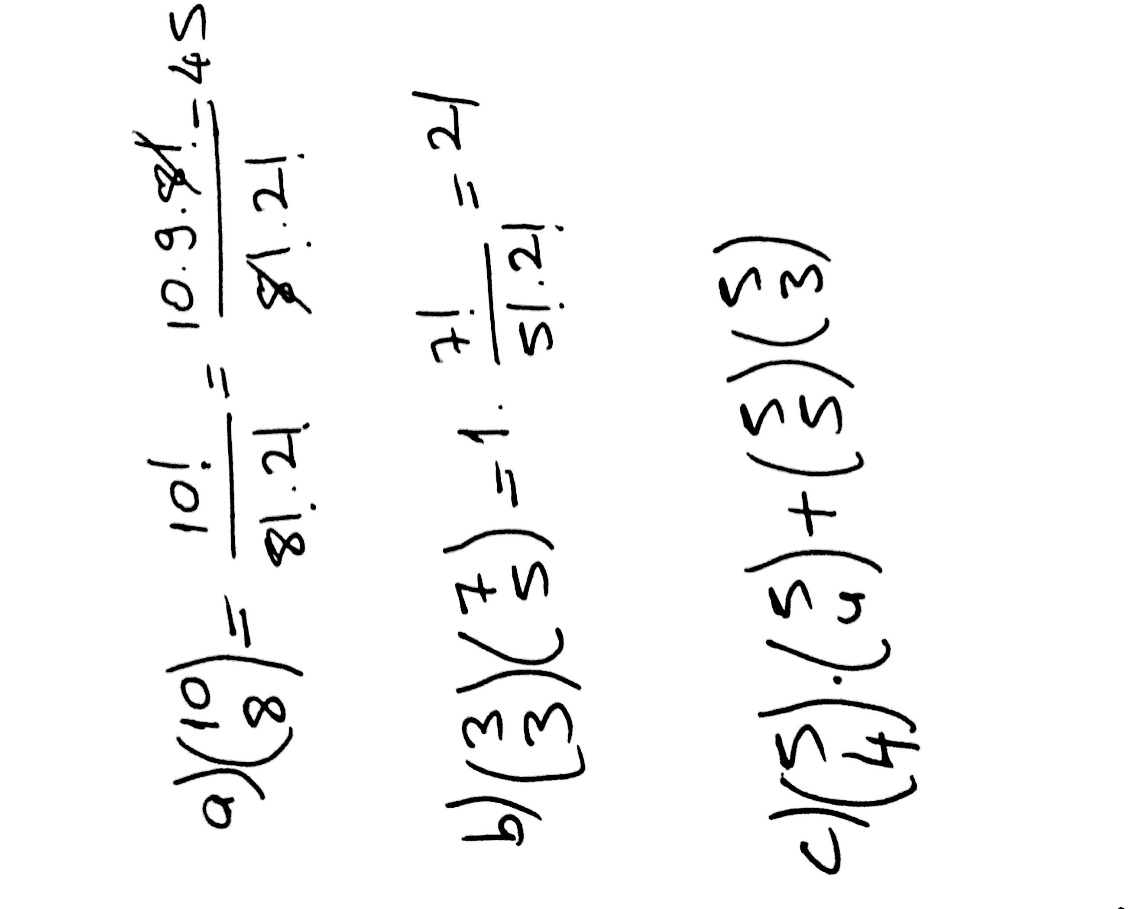 a) (10 8) = 10! / 8!.2! = 10.9.8! / 8!.2! = 45
b) (3 3)(7 5) = 1. 7! / 5!.2! = 21
c) (5 4).(5 4) + (5 5)(5 3)